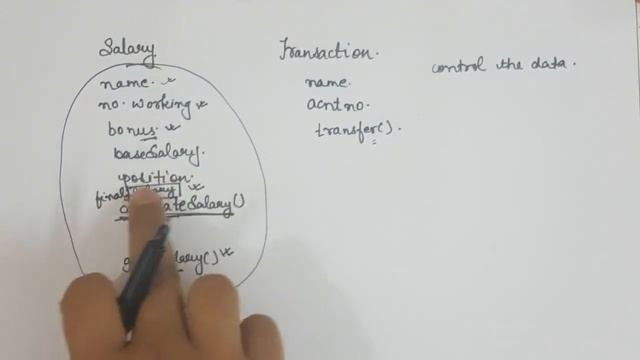 Salary
name.
no. working
bonus
baseSalary.
position.
Transaction.
name.
acnt no.
transfer().
control the data.